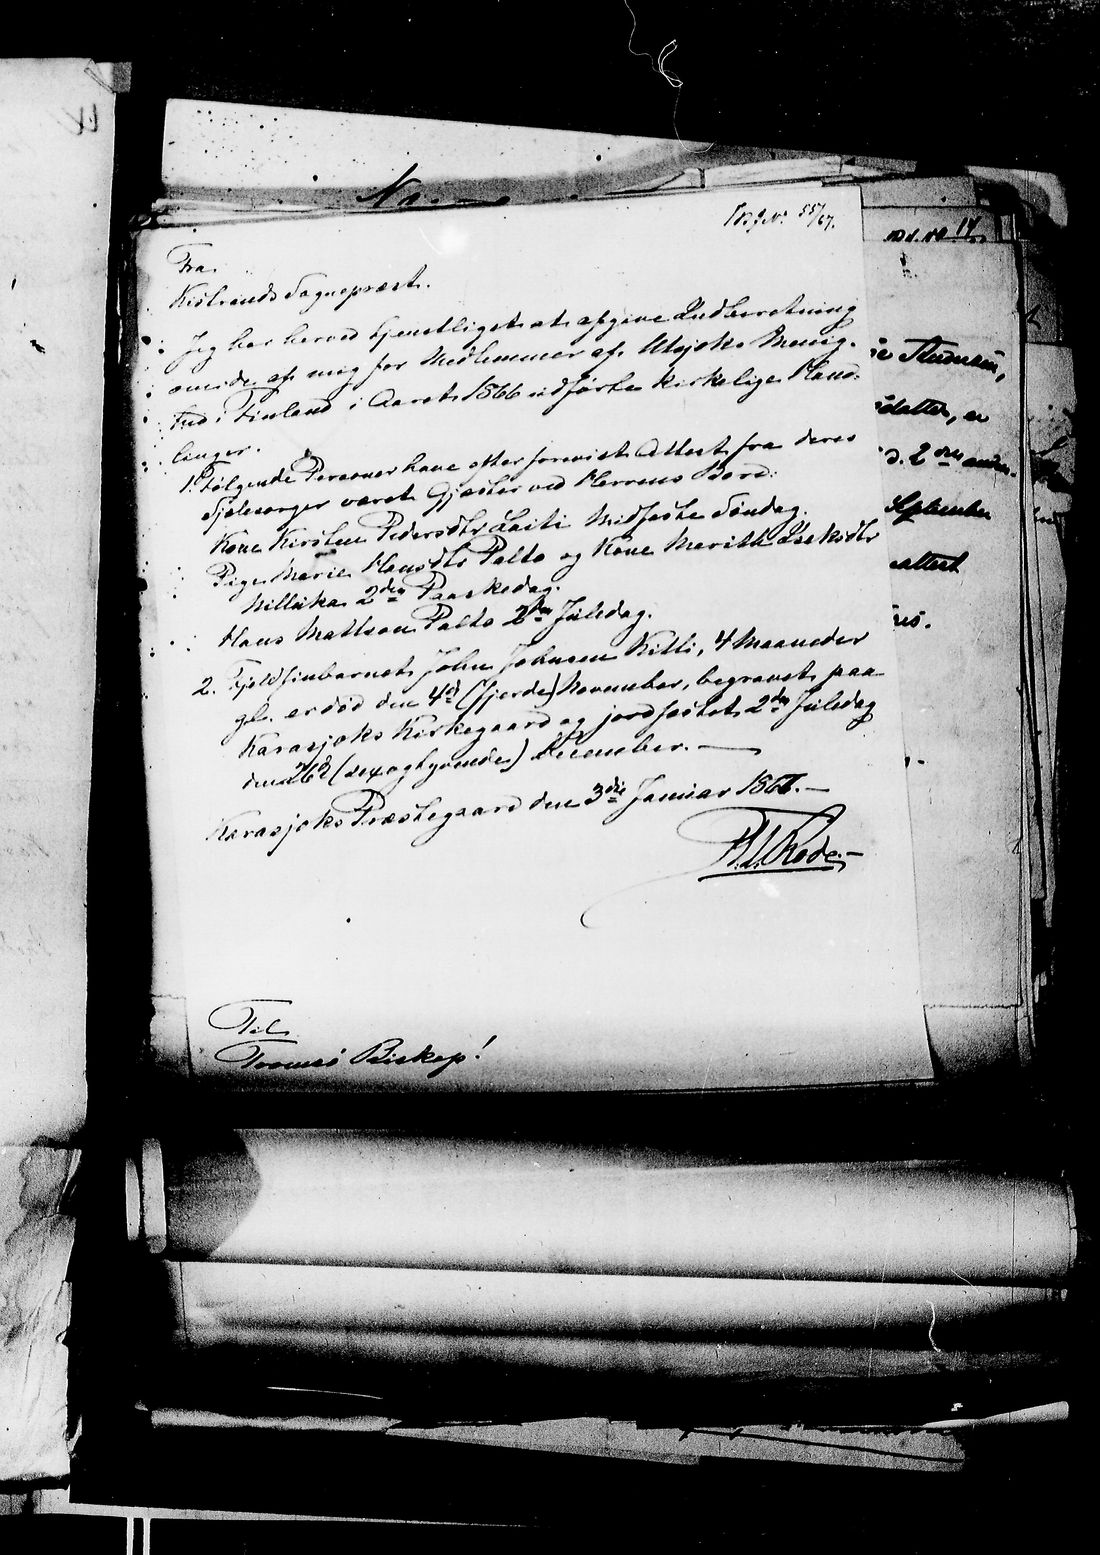 55/67.
Fra
Kistrands Sognepræst.
Jeg har herved tjenstligst at afgive Indberetning
om de af mig for Medlemmer af Utsjoks Menig-
hed i Finland i Aaret 1866 udførte kirkelige Hand-
linger.
1. Følgende Personer have efter forevist Attest fra deres
Sjælesørger været Gjæster ved Herrens Bord:
Kone Kirsten Pedersdtr Laiti Midfaste Søndag.
Pige Marie Hansdtr Palto og Kone Marith Isaksdtr
2den Paaskedag.
Hans Mattson Palto 2den Juledag.
2. Fjeldfinbarnet John Johnsen Kitti, 4 Maaneder
gl. er død den 4d (fjerde) November, begravet paa
Karasjoks Kirkegaard og jordfæstet 2den Juledag
den 26d (sexogtyvende) December. —
Karasjoks Præstegaard den 3die Januar 1867. —
Til
Tromsø Biskop!
14
datter, er
d. 2den
September
attest